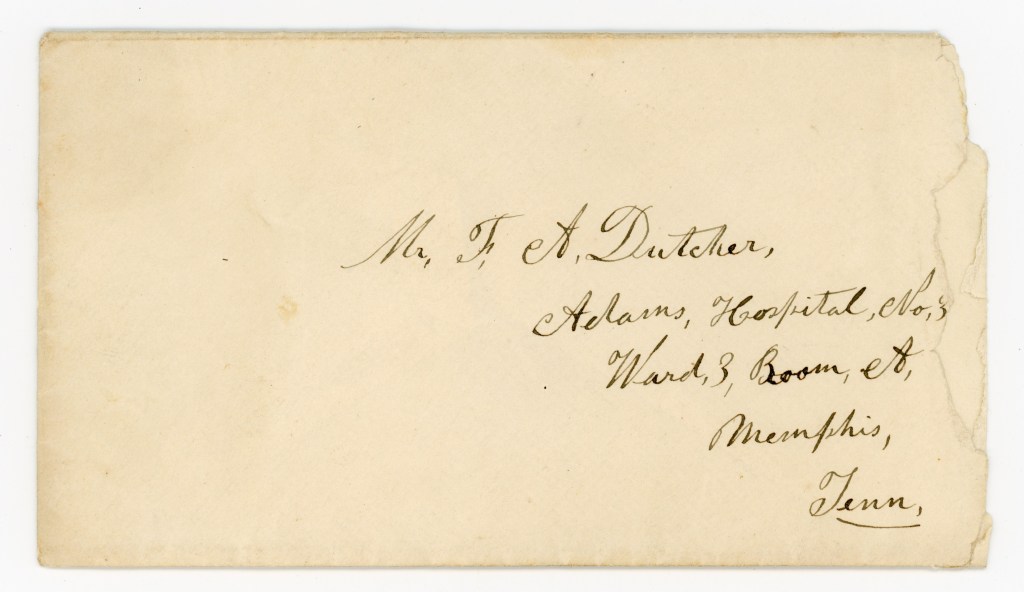 Mr. F. A. Dutcher,
Adams, Hospital, No, 3
Ward, 3, Room, A,
Memphis,
Tenn,